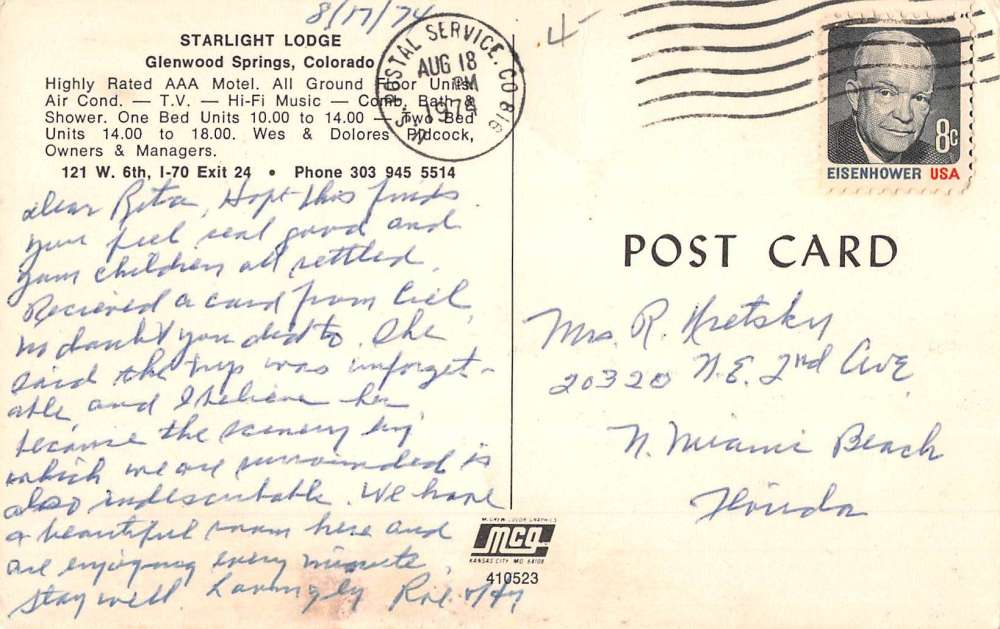 8/17/74
STARLIGHT LODGE
Glenwood Springs, Colorado
Highly Rated AAA Motel. All Ground Floor Units.
Air Cond. — T.V. — Hi-Fi Music — Comb. Bath &
Shower. One Bed Units 10.00 to 14.00 — Two Bed
Units 14.00 to 18.00. Wes & Dolores Pidcock,
Owners & Managers.
121 W. 6th, I-70 Exit 24 • Phone 303 945 5514
Dear Rita, Hope this finds
you feel real good and
your children all settled.
Recieved a card from Ciel,
no doubt you did to. She
said the trip was unforget-
able, and I believe her,
because the scenery by
which we are surrounded is
also indescribable. We have
a beautiful room here and
are enjoying every minute.
Stay well. Lovingly
U.S. POSTAL SERVICE, CO 816
AUG 18
PM
1974
4
8c
EISENHOWER USA
POST CARD
Mrs. R. Kretsky
20320 N.E. 2nd Ave,
N. Miami Beach
Florida
McGREW COLOR GRAPHICS
mcg
KANSAS CITY, MO. 64108
410523